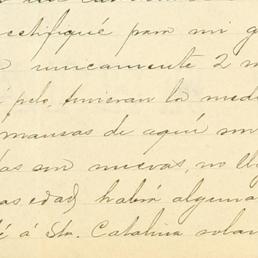 rectifiqué para mi g
unicamente 2 m
pelo, tuvieran la med
mansas de aquí
as son nuevas, no ll
as edad, habrá alguna
é á Sta. Catalina solam